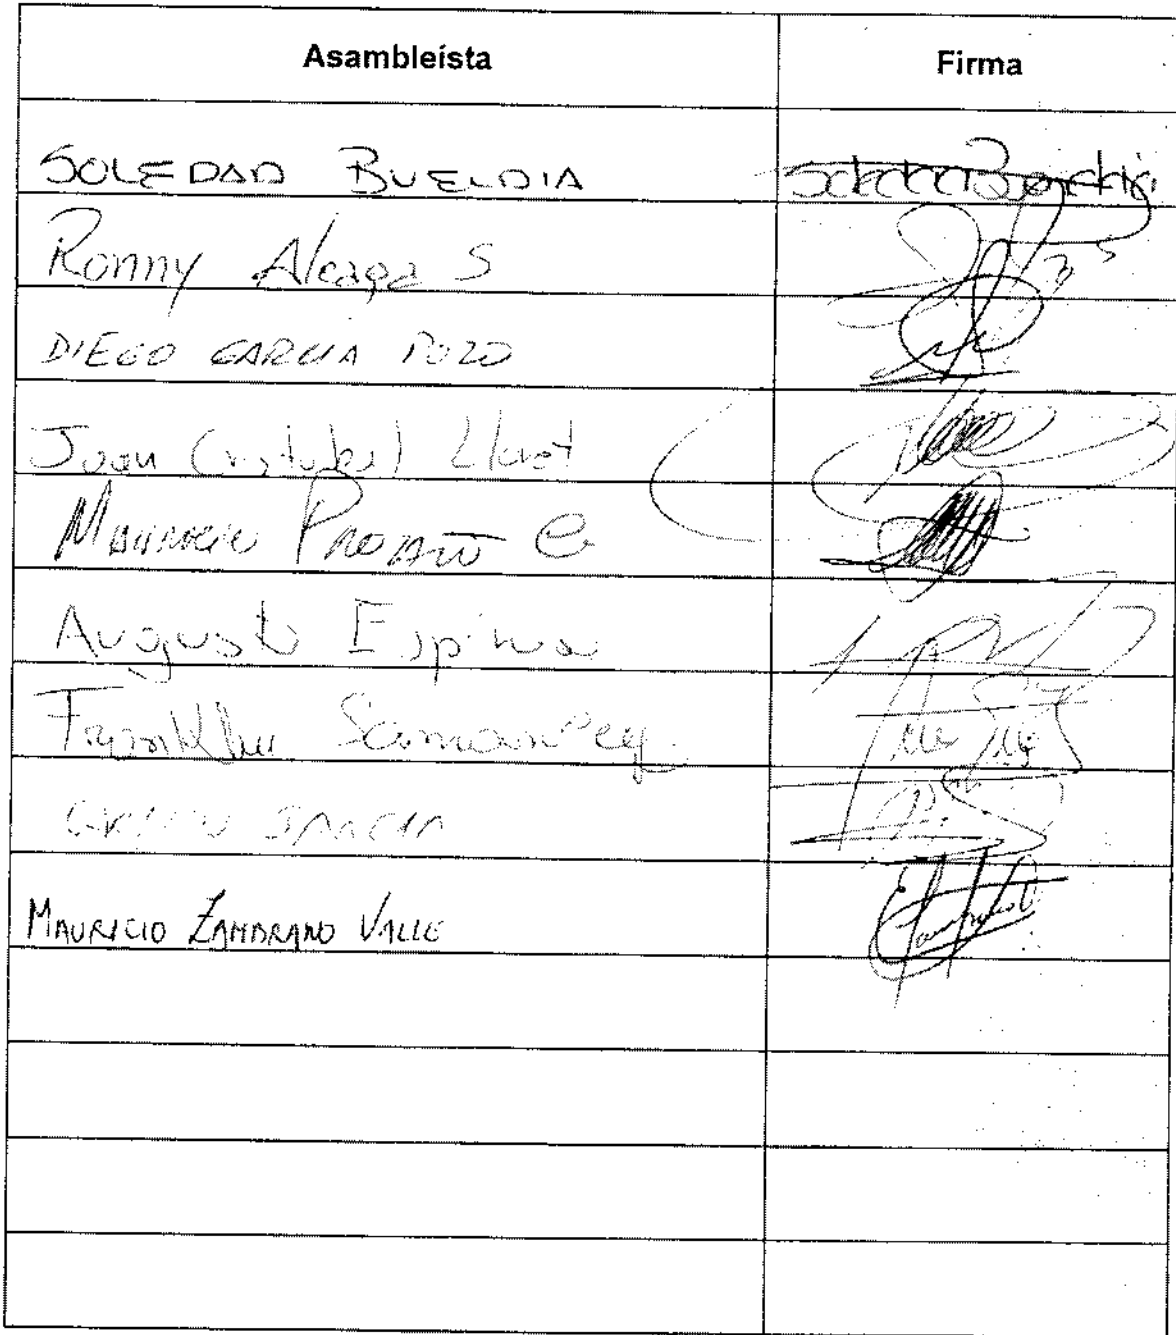 Asambleísta Firma
SOLEDAD BUENDIA
Ronny Aleaga S
DIEGO GARCIA POZO
Juan Cristobal Lloret
MAURICIO PROAÑO C
Augusto Espinosa
Franklin Samaniego
GARCIA
MAURICIO ZAMBRANO VALLE